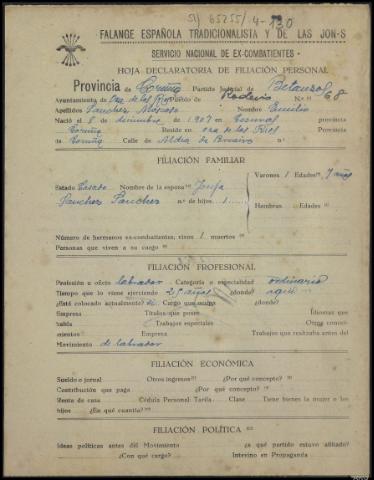 S/ 65255/4-130
FALANGE ESPAÑOLA TRADICIONALISTA Y DE LAS JON-S
SERVICIO NACIONAL DE EX-COMBATIENTES -
HOJA DECLARATORIA DE FILIACIÓN PERSONAL
Provincia de Coruña Partido Judicial de Betanzos
Ayuntamiento de Oza de los Rios Pueblo de Rodeiro N.º 68
Apellidos Sanchez Nombre Emilio
Nació el 8 de diciembre de 1907 en Cesuras provincia
Coruña Reside en Oza de los Rios provincia
de Coruña Calle de Aldea de n.º
FILIACIÓN FAMILIAR
Varones 1 Edades 7 años
Estado Casado Nombre de la esposa Josefa
Sanchez Sanchez n.º de hijos 1 Hembras Edades
Número de hermanos ex-combatientes, vivos 1 muertos
Personas que viven a su cargo
FILIACIÓN PROFESIONAL
Profesión u oficio labrador Categoría o especialidad ordinario
Tiempo que lo viene ejerciendo 25 años ¿dónde?
¿Está colocado actualmente? Cargo que ocupa ¿dónde?
Empresa Títulos que posee Idiomas que
habla Trabajos especiales Otros conoci-
mientos Empresa Trabajos que realizaba antes del
Movimiento de labrador
FILIACIÓN ECONÓMICA
Sueldo o jornal Otros ingresos ¿Por qué concepto?
Contribución que paga ¿Por qué concepto?
Renta de casa Cédula Personal Tarifa Clase Tiene bienes la mujer o los
hijos ¿En qué cuantía?
FILIACIÓN POLÍTICA
Ideas políticas antes del Movimiento ¿a qué partido estuvo afiliado?
¿Con qué cargo? Intervino en Propaganda